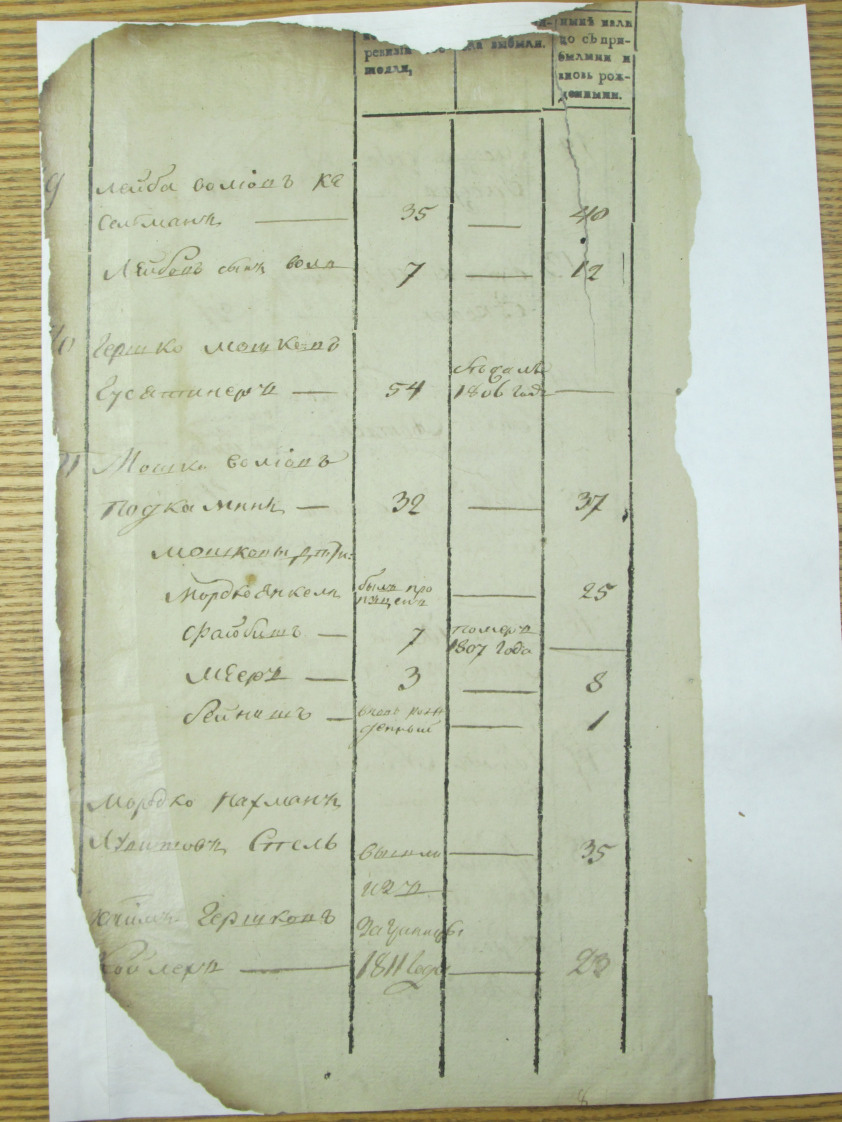 ревизіи
шолли,
да выбыли.
нынѣ нали
цо съ при-
былыми и
вновь рож-
денными.
9 Лейба волiовъ
Сельманъ — 35 — 40
Лейбовъ сынъ волъ 7 — 12
10 Гершко Мошковъ
Гусятинеръ — 54 1806 года —
11 Мошко волiовъ
Подкаминъ — 32 — 37
Мошковы дѣти:
Мордко Янкель былъ про пущенъ — 25
Файбишъ — 7 померъ 1807 года —
Мееръ — 3 — 8
Бейнишъ — вновь рож денный — 1
Мордко Нахманъ
Стель — 35
изъ
Гершковъ
1811 года — 23